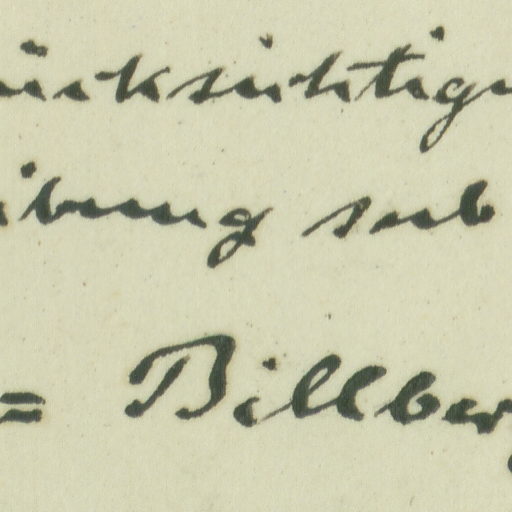 ücksichtigu
ibung sub
= Billber